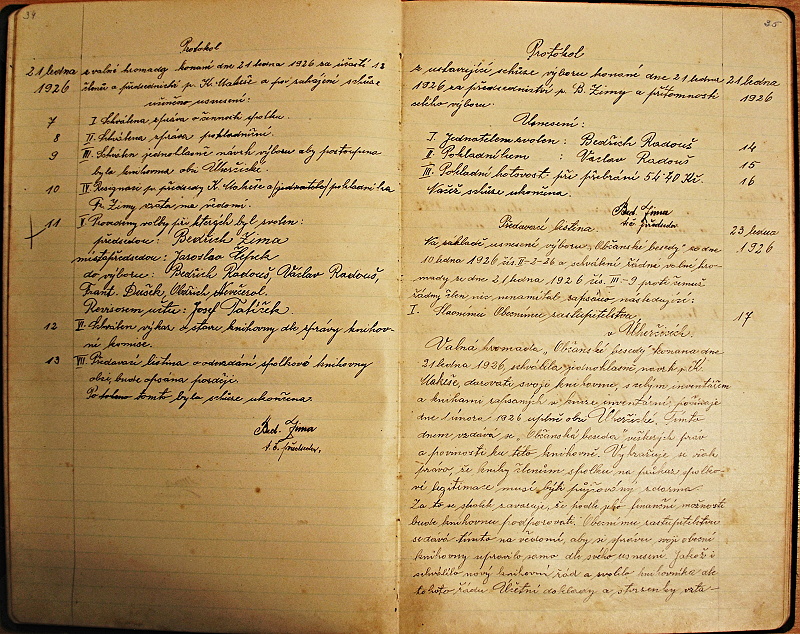 34
Protokol
21 ledna
1926
z valné hromady konané dne 21 ledna 1926 za účasti 18
členů a předsednictví p. K. Makeše a po zahájení schůze
učiněno usnesení:
7 I Schválena zpráva o činnosti spolku.
8 II. Schválena zpráva pokladniční.
9 III. Schválen jednohlasně návrh výboru aby postoupena
byla knihovna obci Úherčické.
10 IV. Resignaci p. předsedy K. Makeše a jednatele/pokladníka
Fr. Zimy vzata na vědomí.
11 V. Provedeny volby při kterých byl zvolen:
předsedou: Bedřich Zima
místopředsedou: Jaroslav
do výboru: Bedřich Radouš, Václav Radouš,
Frant. Dušek, Oldřich Nevečeřal.
Revisorem účtů: Josef Tatíček
12 VI. Schválen výkaz o stavu knihovny dle zprávy knihov-
ní komise.
13 VII. Předávací listina o odevzdání spolkové knihovny
obci, bude opsána později.
Po tomto byla schůze ukončena.
Bed. Zima
t. č. předseda.
35
Protokol
z ustavující schůze výboru konané dne 21 ledna
1926 za předsednictví p. B. Zimy a přítomnosti
celého výboru.
21 ledna
1926
Usnesení:
I. Jednatelem zvolen: Bedřich Radouš 14
II. Pokladníkem : Václav Radouš 15
III. Pokladní hotovost při přebrání 54·70 Kč. 16
Načež schůze ukončena.
Bed. Zima
t. č. předseda
Předávací listina. 23 ledna
1926
Na základě usnesení výboru „Občanské besedy" ze dne
10 ledna 1926 čís. II-2-26 a schválení řádné valné hro-
mady ze dne 21 ledna 1926 čís. III-9 proti čemuž
řádný člen nic nenamítal zapsáno, následující:
I. Slavnému Obecnímu zastupitelstvu 17
v Úherčicích.
Valná hromada „Občanské besedy" konaná dne
21 ledna 1926, schválila jednohlasně návrh p. K.
Makeše, darovati svoje knihovnu, s celým inventářem
a knihami zapsaných v knize inventární, počínaje
dne 1 února 1926 úplně obci Úherčické. Tímto
dnem vzdává se „Občanská beseda" veškerých práv
a povinností ku této knihovně. Vyhražuje si však
právo, že knihy členům spolku na průkaz spolko-
vé legitimace musí býti půjčovány zdarma.
Za to se spolek zavazuje, že podle jeho finanční možnosti
bude knihovnu podporovati. Obecnímu zastupitelstvu
se dává tímto na vědomí, aby si správu svojí obecní
knihovny upravilo samo dle svého usnesení. Jakož i
schválilo nový knihovní řád a zvolilo knihovníka dle
tohoto řádu. Účetní doklady a stvrzenky vzta-